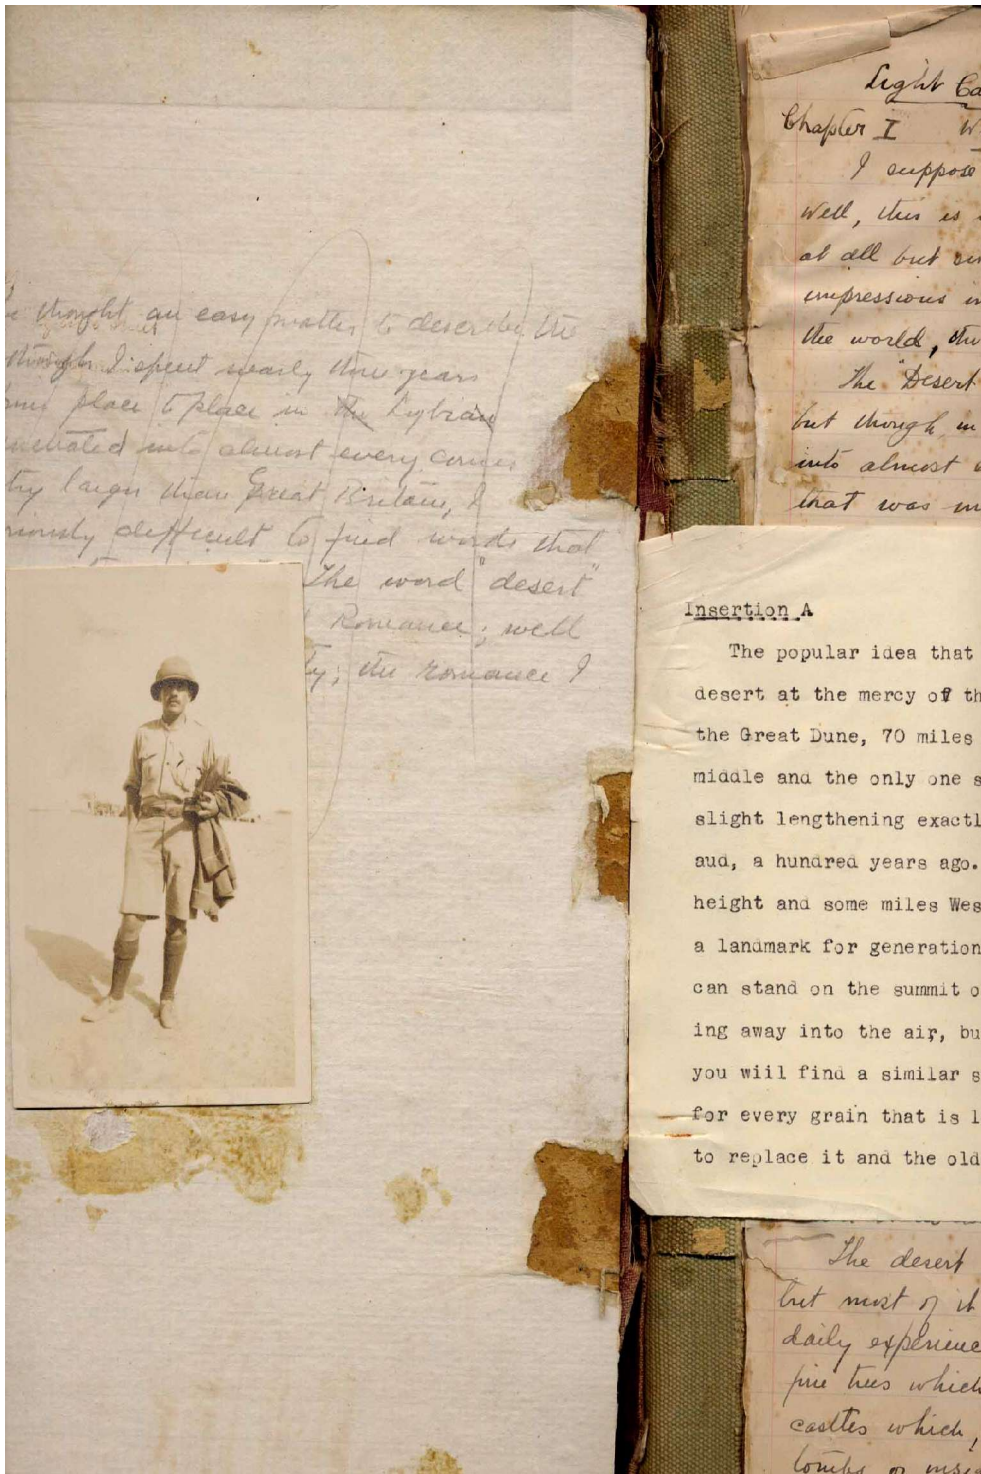 thought an easy matter to describe the
through I spent nearly three years
place to place in the Lybian
into almost every corner
try larger than Great Britain, I
difficult to find words that
The word "desert"
Romance; well
ty; the romance I
Light Ca
Chapter I W
I suppose
Well, this is
at all but
impressions in
the world, the
The "Desert
but though in
into almost
that was
Insertion A
The popular idea that
desert at the mercy of th
the Great Dune, 70 miles
middle and the only one s
slight lengthening exactl
aud, a hundred years ago.
height and some miles Wes
a landmark for generation
can stand on the summit o
ing away into the air, bu
you wiil find a similar s
for every grain that is l
to replace it and the old
The desert
but most of it
daily experienc
pine trees which
castles which,
tombs or